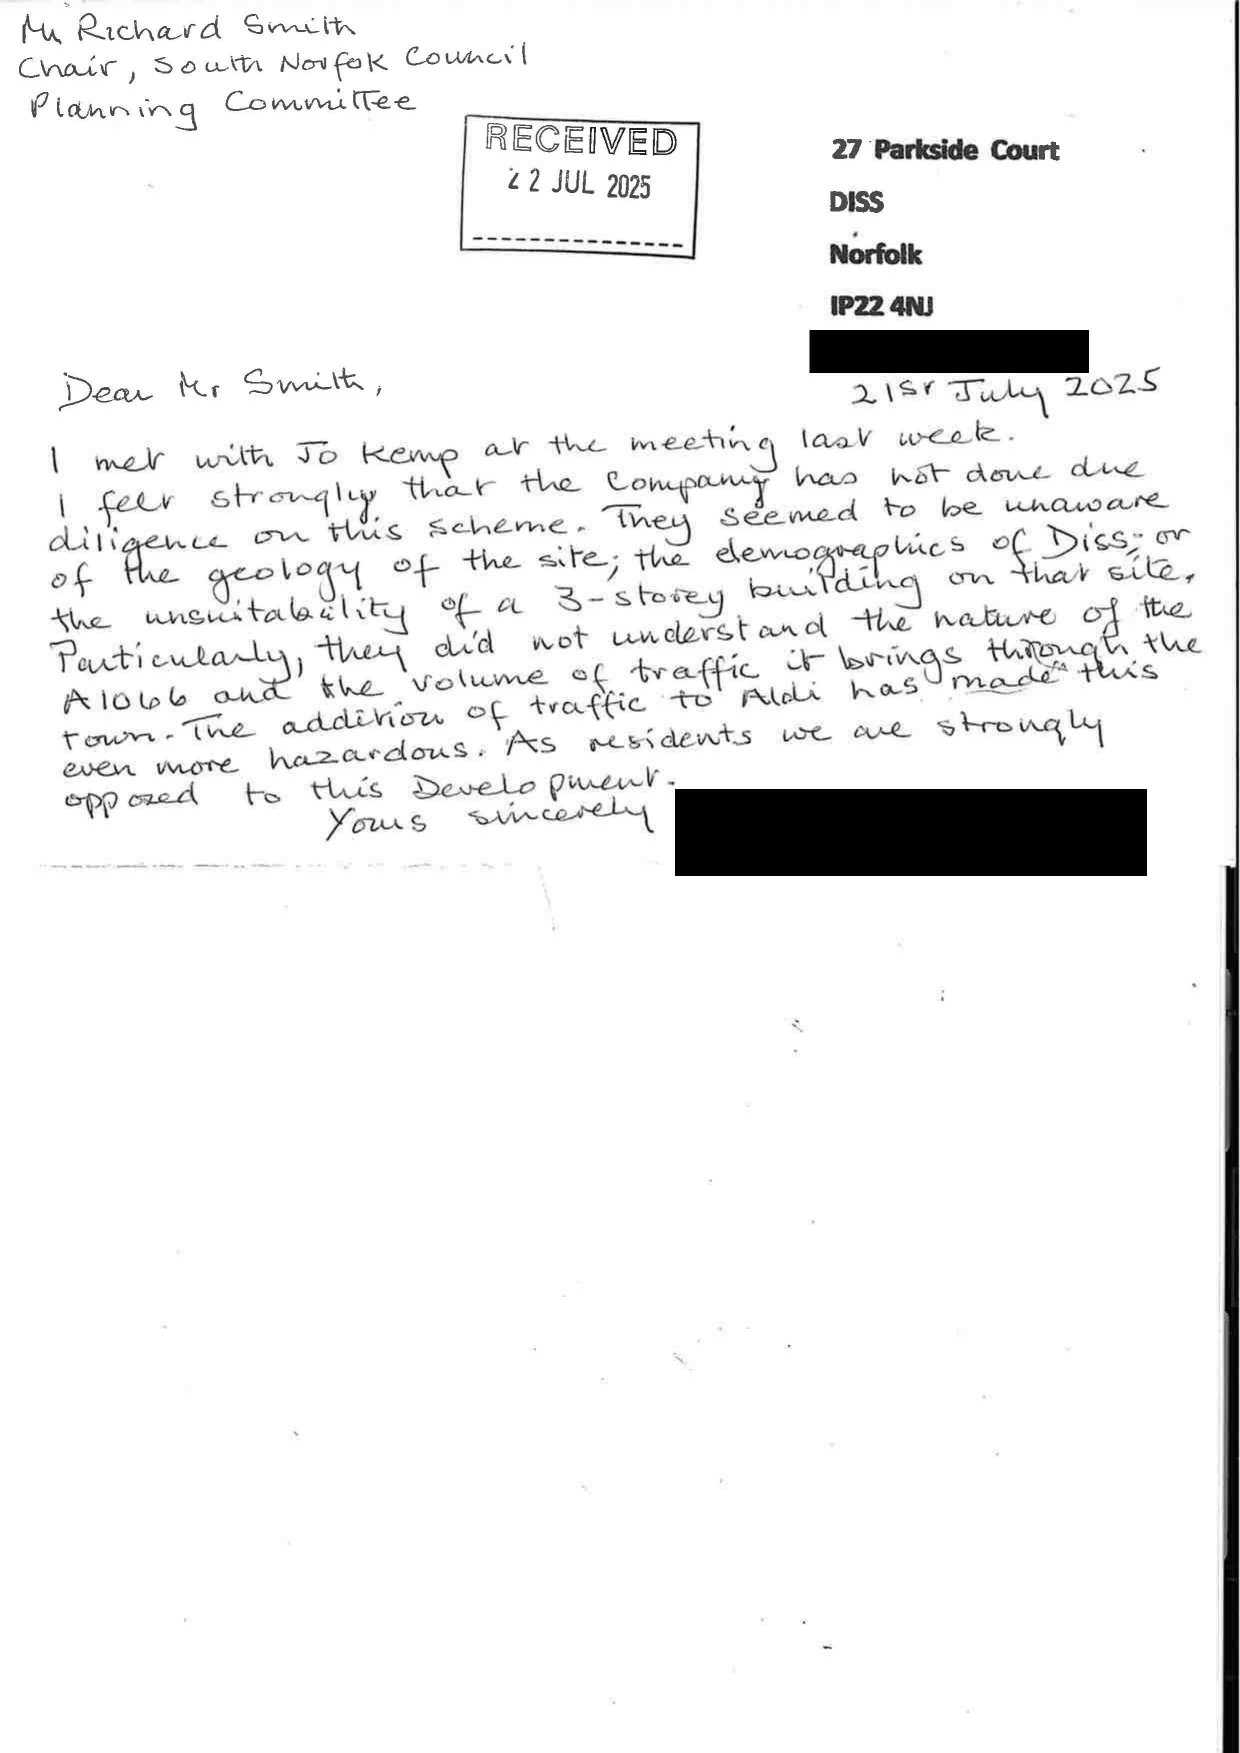 Mr Richard Smith
Chair, South Norfolk Council
Planning Committee
RECEIVED
22 JUL 2025
27 Parkside Court
DISS
Norfolk
IP22 4NJ
Dear Mr Smith,
21st July 2025
I met with Jo Kemp at the meeting last week.
I feel strongly that the Company has not done due
diligence on this scheme. They seemed to be unaware
of the geology of the site; the demographics of Diss; or
the unsuitability of a 3-storey building on that site.
Particularly, they did not understand the nature of the
A1066 and the volume of traffic it brings through the
town. The addition of traffic to Aldi has made this
even more hazardous. As residents we are strongly
opposed to this Development.
Yours sincerely